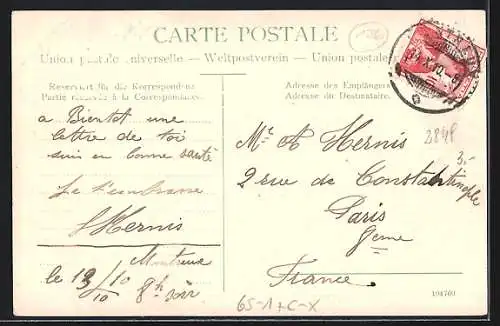 CARTE POSTALE
Union postale universelle. — Weltpostverein — Union postale
Reserviert für die Korrespondenz
Partie réservée à la Correspondance.
Adresse des Empfängers
Adresse du Destinataire.
a Bientot une
lettre de toi
suis en bonne santé
Je t'embrasse
Hernis
Montreux
le 19/10 8h soir
Mr A Hernis
2 rue de Constantinople
Paris
8eme
France.
2848
3.-
65-17C-X
104769